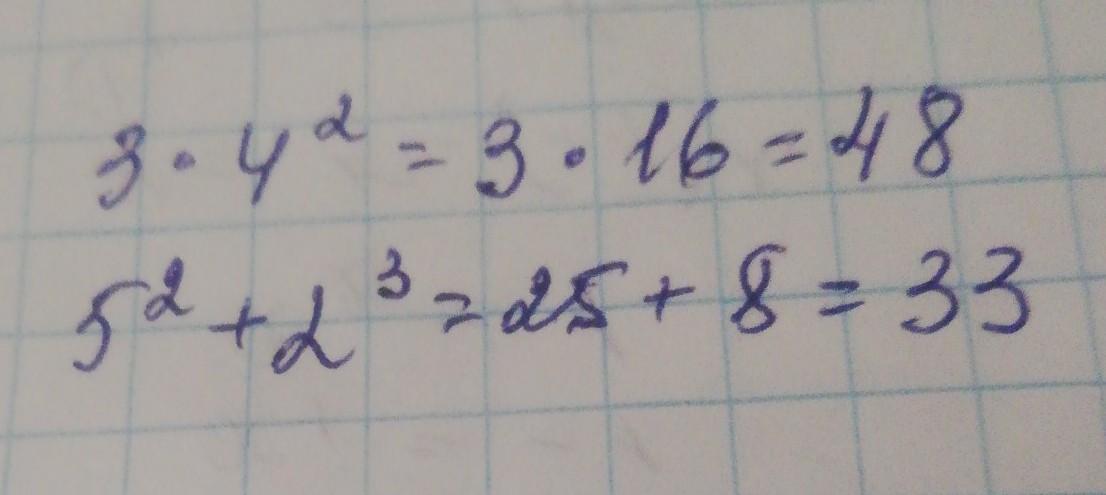 3 · 4² = 3 · 16 = 48
5² + 2³ = 25 + 8 = 33